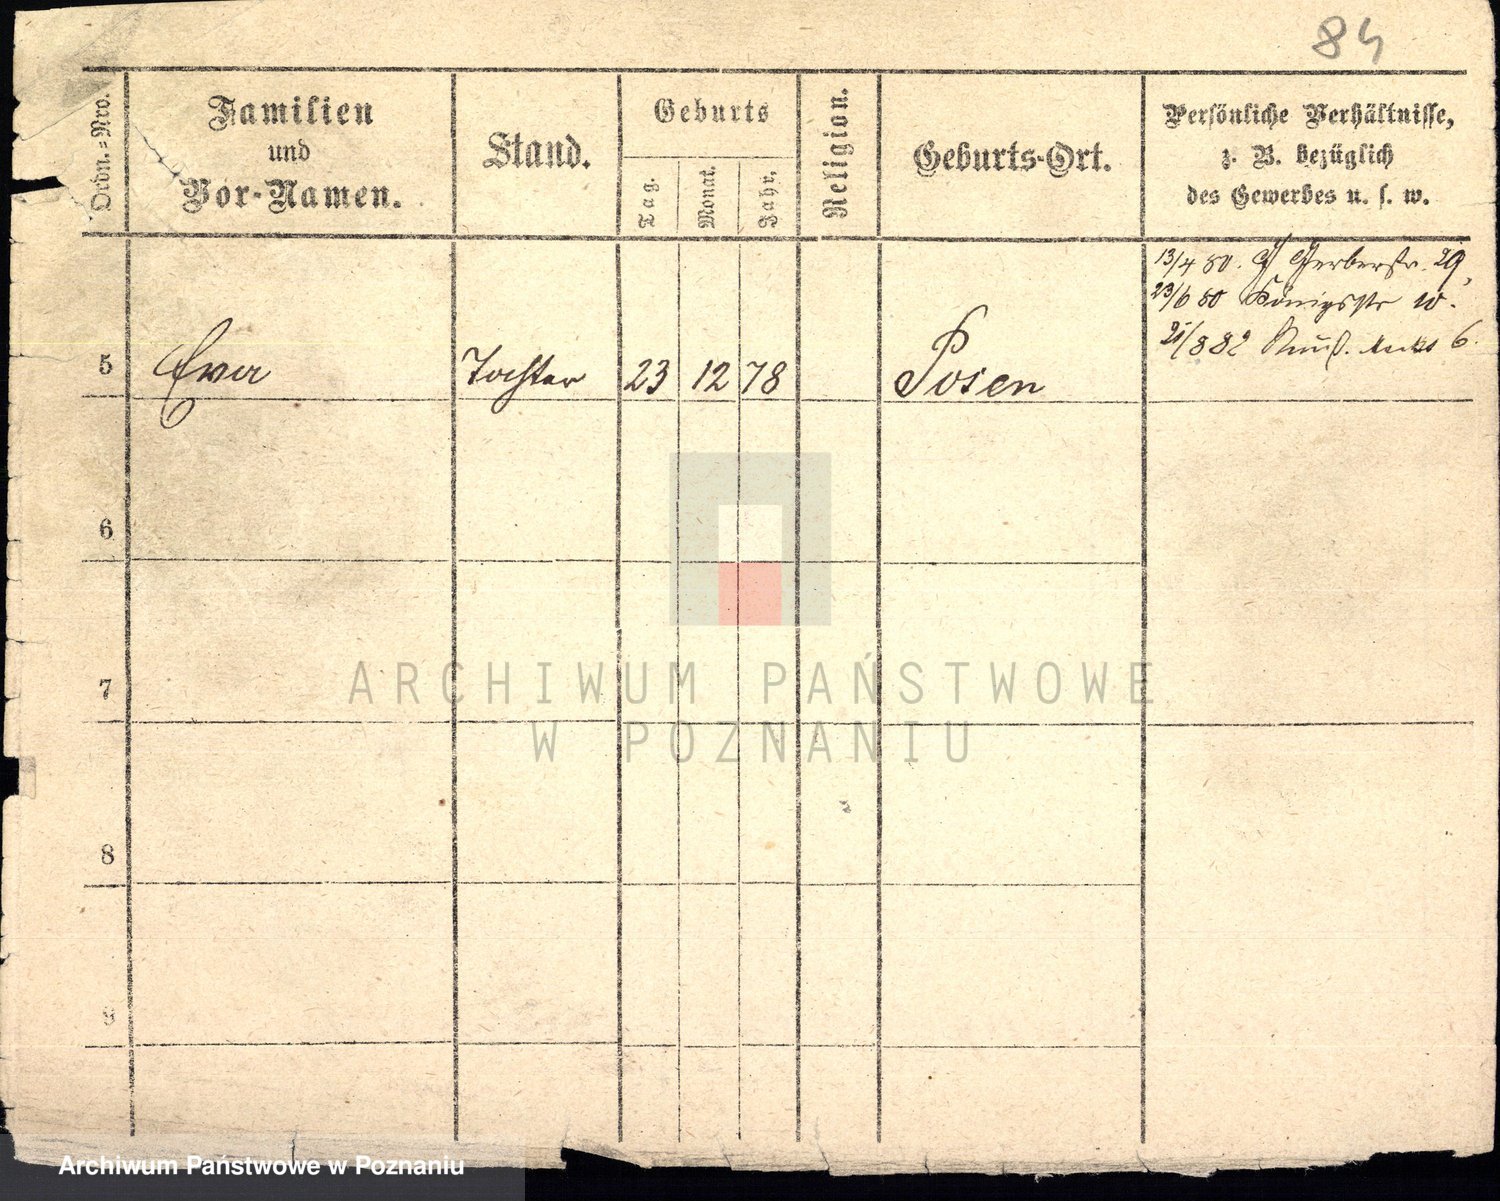 84
Ordn.=Nro.
Familien
und
Vor-Namen.
Stand.
Geburts
Tag.
Monat.
Jahr.
Religion.
Geburts-Ort.
Persönliche Verhältnisse,
z. B. bezüglich
des Gewerbes u. s. w.
13/4 80. Gerberstr. 29,
23/6 80 Königsstr 10.
21/8 82 6.
5 Eva Tochter 23 12 78 Posen
6
7
8
9
ARCHIWUM PAŃSTWOWE
W POZNANIU
Archiwum Państwowe w Poznaniu